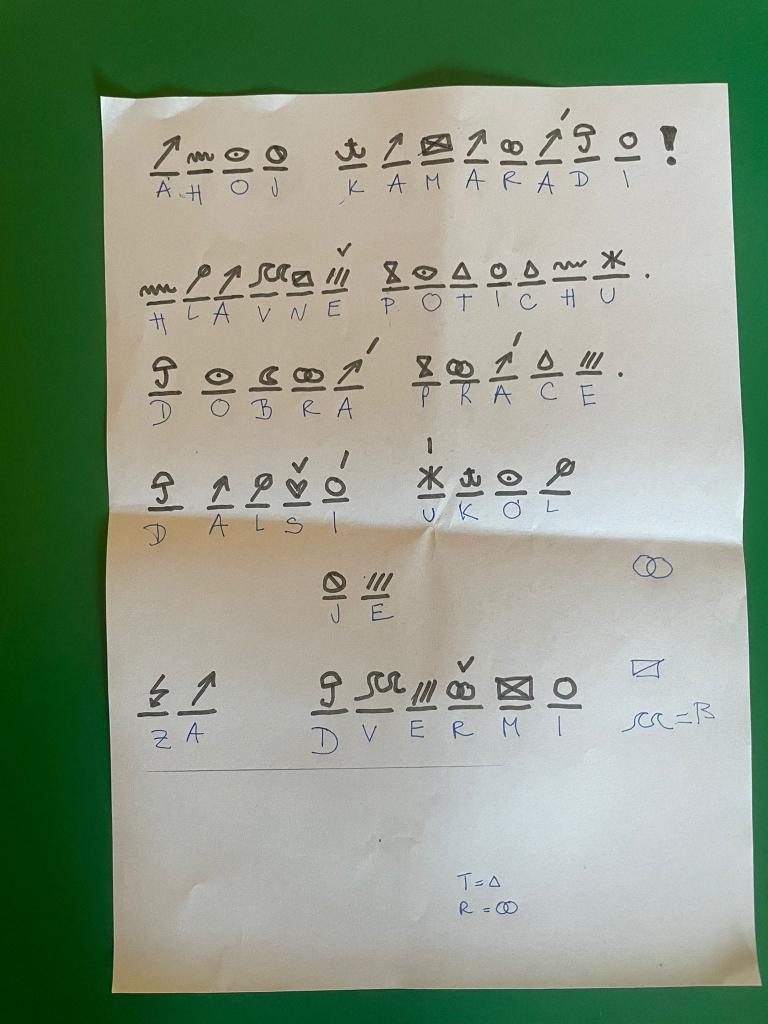 AHOJ KAMARADI !
HLAVNE POTICHU .
DOBRA PRACE .
DALSI UKOL
JE
ZA DVERMI
= B
T = △
R =